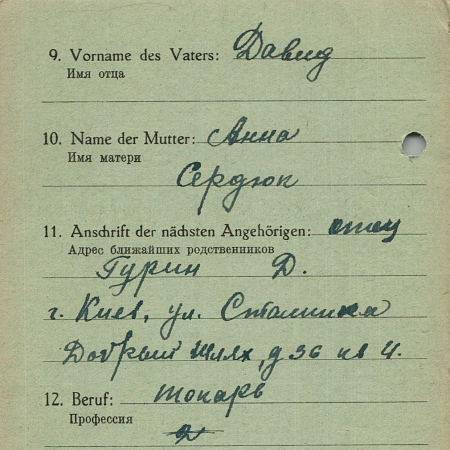 9. Vorname des Vaters: Давид
Имя отца
10. Name der Mutter: Анна
Имя матери
Сердюк
11. Anschrift der nächsten Angehörigen: отец
Адрес ближайших родственников
Гурин Д.
г. Киев, ул. Сталинка
Добрый шлях, д 36 кв 4.
12. Beruf: токарь
Профессия